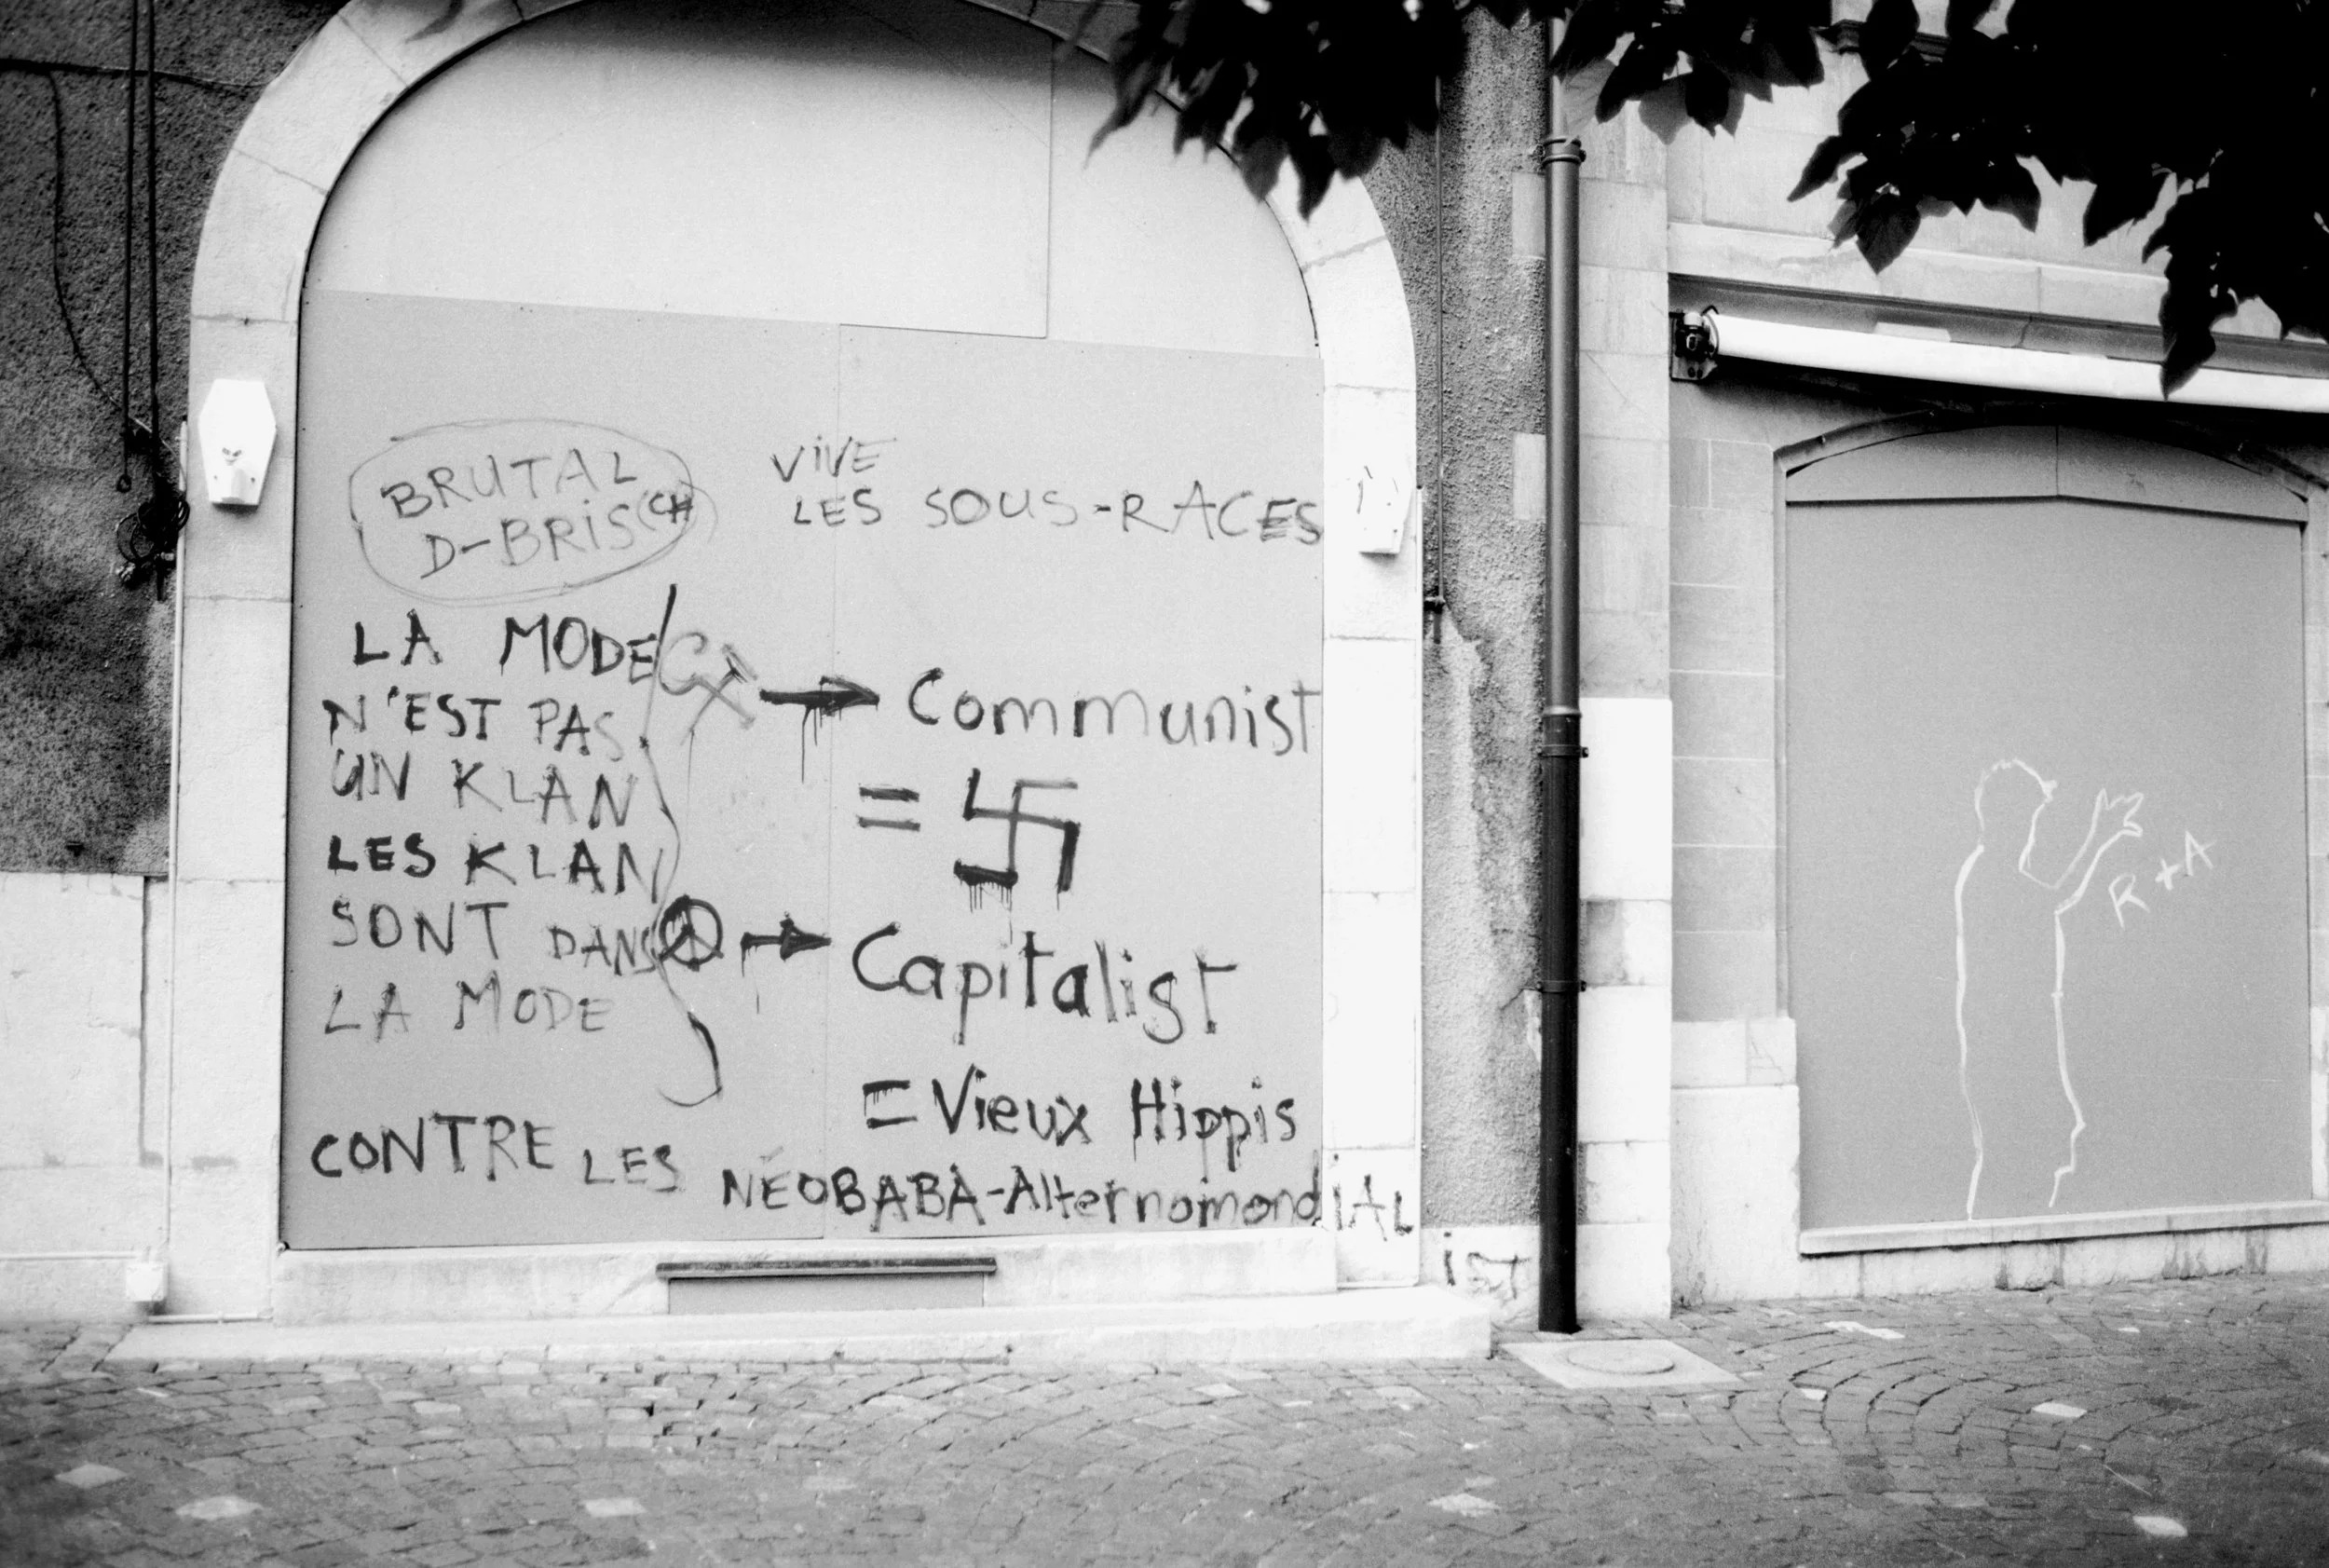 BRUTAL
D-BRIS(CH)
VIVE
LES SOUS-RACES
LA MODE
N'EST PAS
UN KLAN
LES KLAN
SONT DANS
LA MODE
Communist
=
Capitalist
= Vieux Hippis
CONTRE LES NÉOBABA-AlternomondiAL
iST
R+A